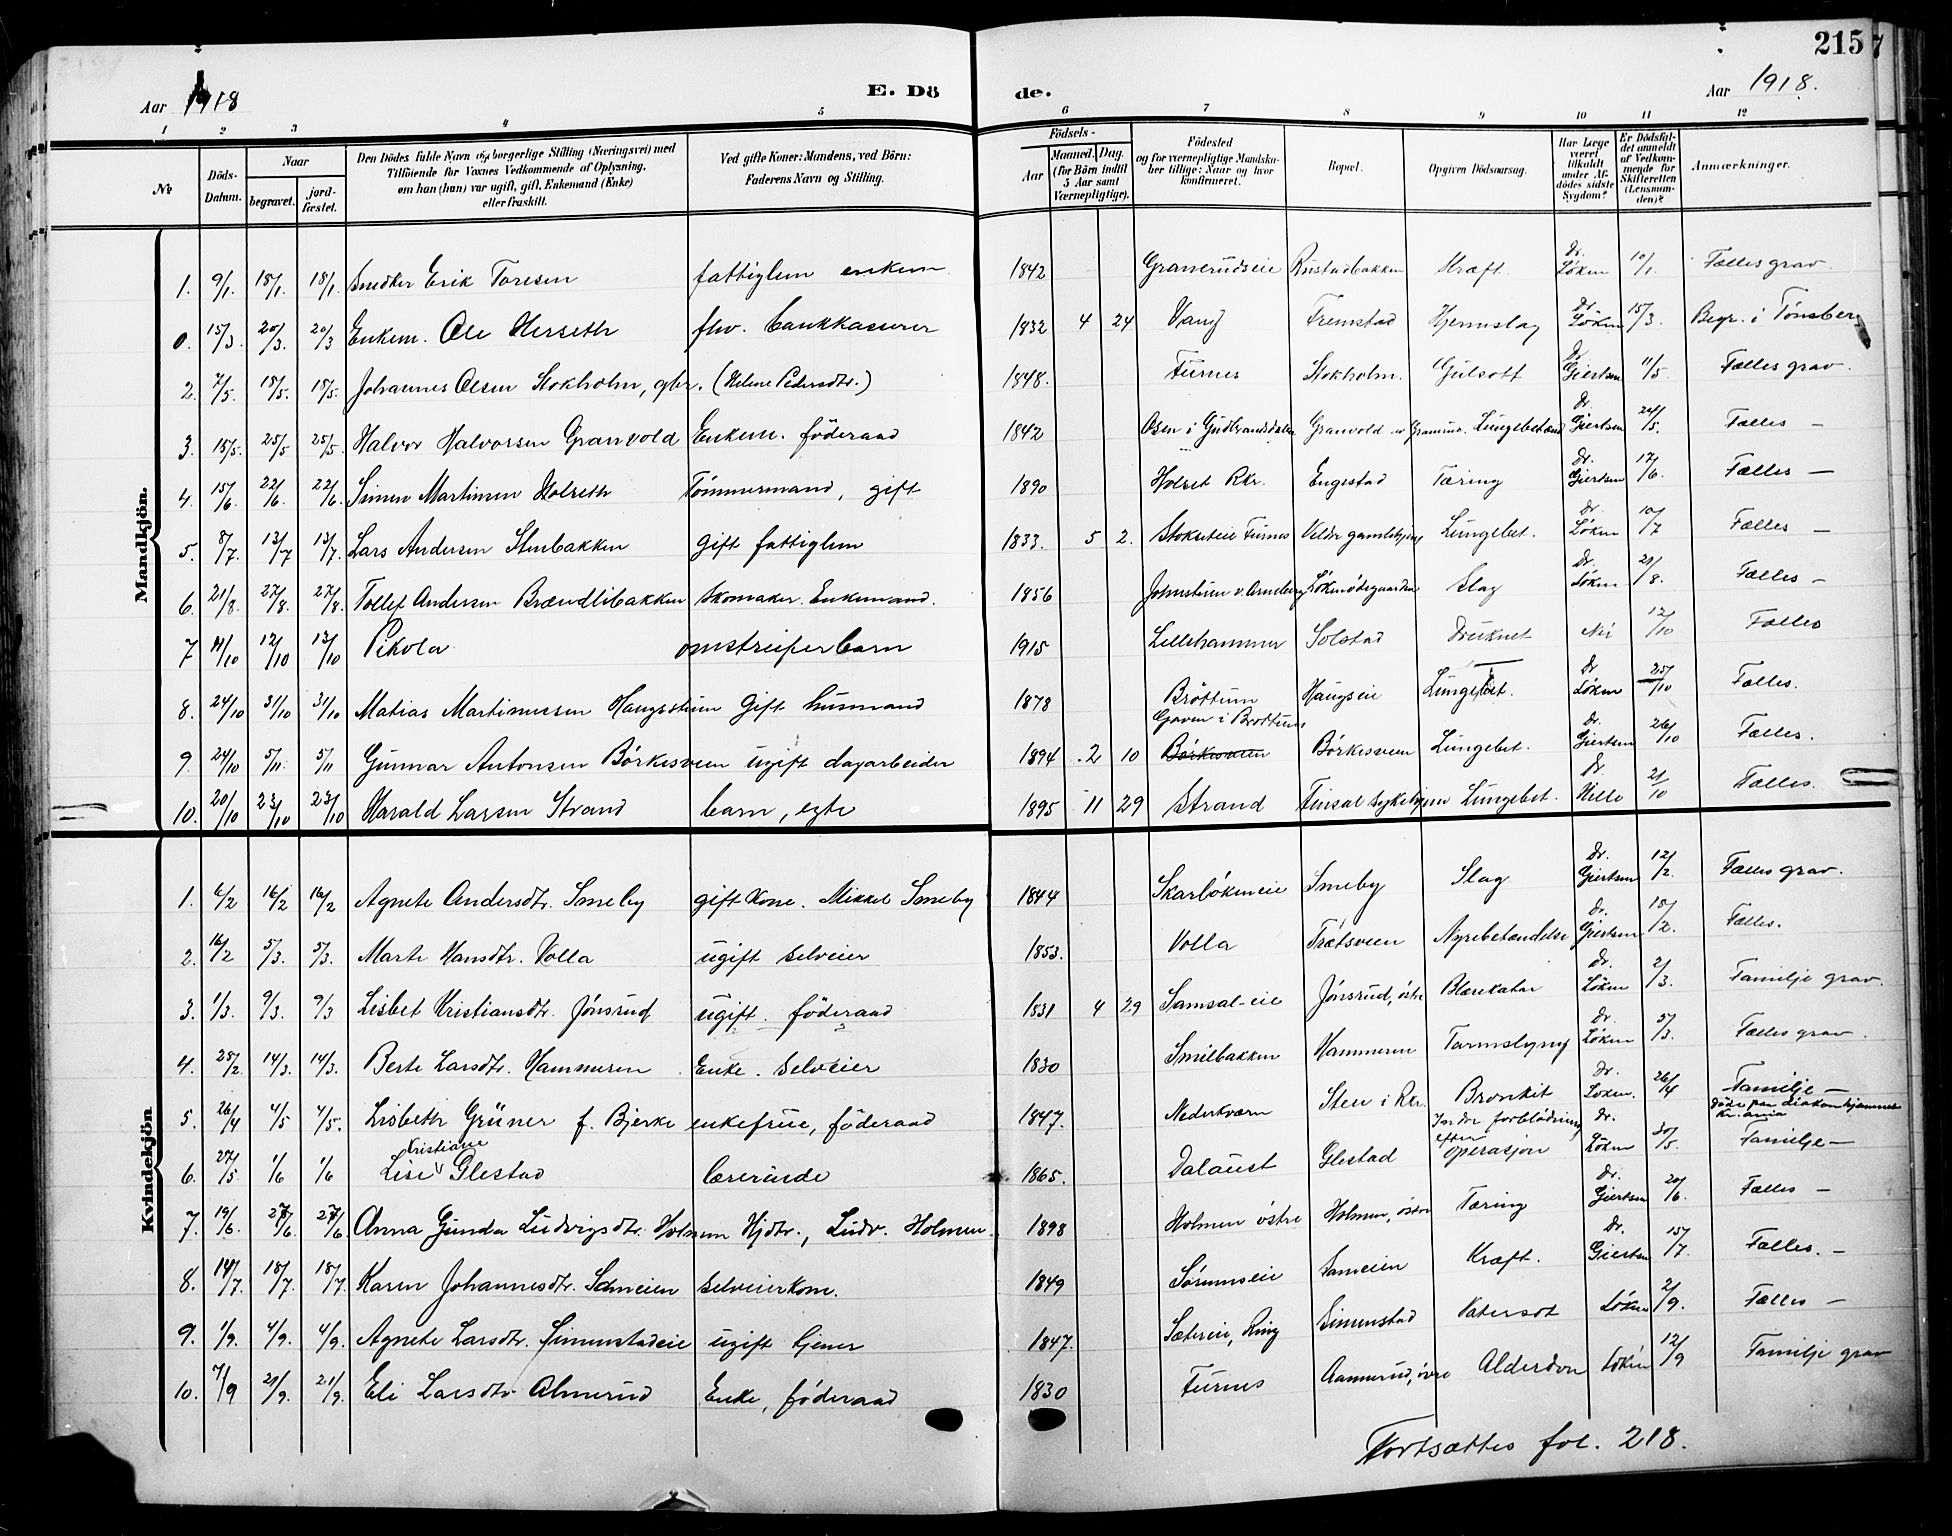 215
Aar 1918
E. Dö de.
Aar 1918.
1 2 3 4 5 6 7 8 9 10 11 12
No
Döds-Datum.
Naar
begravet.
jord-fæstet.
Den Dödes fulde Navn og borgerlige Stilling (Næringsvei) med
Tilföiende for Voxnes Vedkommende af Oplysning,
om han (hun) var ugift, gift, Enkemand (Enke)
eller fraskilt.
Ved gifte Koner: Mandens, ved Börn:
Faderens Navn og Stilling.
Födsels-
Aar
Maaned. Dag.
(for Börn indtil
5 Aar samt
Værnepligtige).
Födested
og for værnepligtige Mandska-
ber tillige: Naar og hvor
konfirmeret.
Bopæl.
Opgiven Dödsaarsag.
Har Læge
været
tilkaldt
under Af-
dödes sidste
Sygdom?
Er Dödsfal-
det anmeldt
af Vedkom-
mende for
Skifteretten
(Lensman-
den)?
Anmærkninger.
Mandkjön.
1. 9/1. 18/1. 18/1. Snedker Erik Toresen fattiglem enkem. 1842 Granerudseie Rustadbakken Kræft. Dr. Löken 10/1. Fælles grav.
0. 15/3. 20/3. 20/3 Enkem. Ole Herseth fhv. bankkasserer 1832 4 24 Vang Fremstad Hjernslag Dr. Löken 15/3. Begr. i Tønsberg
2. 7/5. 18/5. 18/5. Johannes Olsen Stokholm, gbr. (Helene Pedersdtr.) 1848. Furnes Stokholm. Gulsott Dr. Giertsen 11/5. Fælles grav.
3. 15/5. 25/5 25/5. Halvor Halvorsen Granvold Enkem. föderaad 1842 Osen i Gudbrandsdalen Granvold Lungebetænd Dr. Giertsen 24/5. Fælles —
4. 15/6 22/6. 22/6. Simen Martinsen Holseth Tömmermand, gift 1890 Holset Rkr. Engestad Tæring Dr. Giertsen 17/6. Fælles —
5. 8/7. 13/7 13/7. Lars Andersen Stenbakken gift fattiglem 1833. 5 2. Stokseteie Furnes Veldre gamlehjem Lungebet. Dr. Löken 10/7 Fælles —
6. 21/8. 27/8. 27/8. Tollef Andersen Brændlibakken skomaker. Enkemand. 1856 Johnstuen v. Arneberg Lökenödegaarden Slag Dr. Löken 21/8. Fælles —
7 11/10 12/10 13/10 Pikola omstreiferbarn 1915 Lillehammer Solstad Druknet Nei 12/10 Fælles
8. 24/10 31/10 31/10 Matias Martinussen Haugsstuen Gift husmand 1878 Bröttum Haugseie Lungebet. Dr. Löken 25/10 Fælles.
9. 24/10 5/11. 5/11 Gunnar Antonsen Börkesveen ugift dagarbeider 1894 2 10 Börkesveen Börkesveen Lungebet. Dr. Giertsen 26/10 Fælles.
10. 20/10 23/10 23/10 Harald Larsen Strand barn, egte 1895 11 29 Strand Finsal sykehjem Lungebet. Dr. Helle 21/10 Fælles.
Kvindekjön
1. 6/2 16/2 16/2 Agnete Andersdtr. Smeby gift Kone. Mikkel Smeby 1844 Skarlökeneie Smeby Slag Dr. Giertsen 12/2. Fælles grav.
2. 16/2 5/3. 5/3. Marte Hansdtr. Volla ugift selveier 1853. Volla Trætsveen Nyrebetændelse Dr. Giertsen 18/2. Fælles.
3. 1/3. 9/3. 9/3 Lisbet Kristiansdtr. Jönsrud ugift. föderaad 1831 4 29 Samsal-eie Jönsrud, östre Blærekatar Dr. Löken 2/3. Familje grav.
4. 25/2. 14/3. 14/3. Berte Larsdtr. Hammeren Enke. selveier 1830 Smilbakken Hammeren Tarmslyng Dr. Löken 5/3. Fælles grav.
5. 26/4 4/5 4/5. Lisbeth Grüner f. Bjerke enkefrue, föderaad 1847. Nederkværn Sten i Rkr. Bronkit Dr. Löken. 26/4 Familje —
Kristiane Indre forblödning efter döde paa diakonhjemmet Kr.ania
6. 27/5 1/6 1/6 Lise Glestad lærerinde 1865. Dalaust Glestad operasjon Dr. Löken 30/5. Familje —
7. 19/6. 27/6. 27/6. Anna Gunda Ludvigsdtr. Holmen Hjdtr., Ludv. Holmen. 1898 Holmen östre Holmen, östre Tæring Dr. Giertsen 20/6. Fælles —
8. 14/7. 18/7. 18/7. Karen Johannesdtr. Sameien selveierkone. 1849 Sörumseie Sameien Kræft. Dr. Giertsen 15/7. Fælles. —
9. 1/9. 4/9. 4/9. Agnete Larsdtr. Simenstadeie ugift tjener 1847. Sætereie, Ring Simenstad Vatersot Löken 2/9. Fælles —
10. 7/9 21/9. 21/9. Eli Larsdtr Almerud Enke, föderaad 1830 Furnes Aamerud, övre Alderdom Löken 12/9 Familje grav
Fortsættes fol. 218.